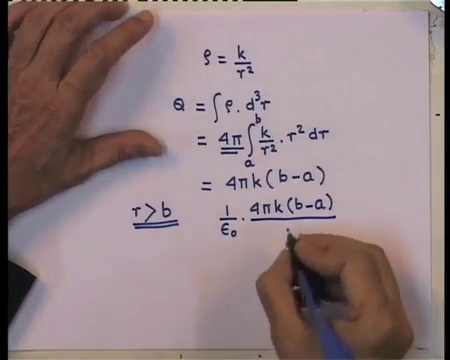 ρ = k/r²
Q = ∫ρ. d³r
= 4π ∫ₐᵇ k/r² . r² dr
= 4πk(b-a)
r > b 1/ε₀ . 4πk(b-a)